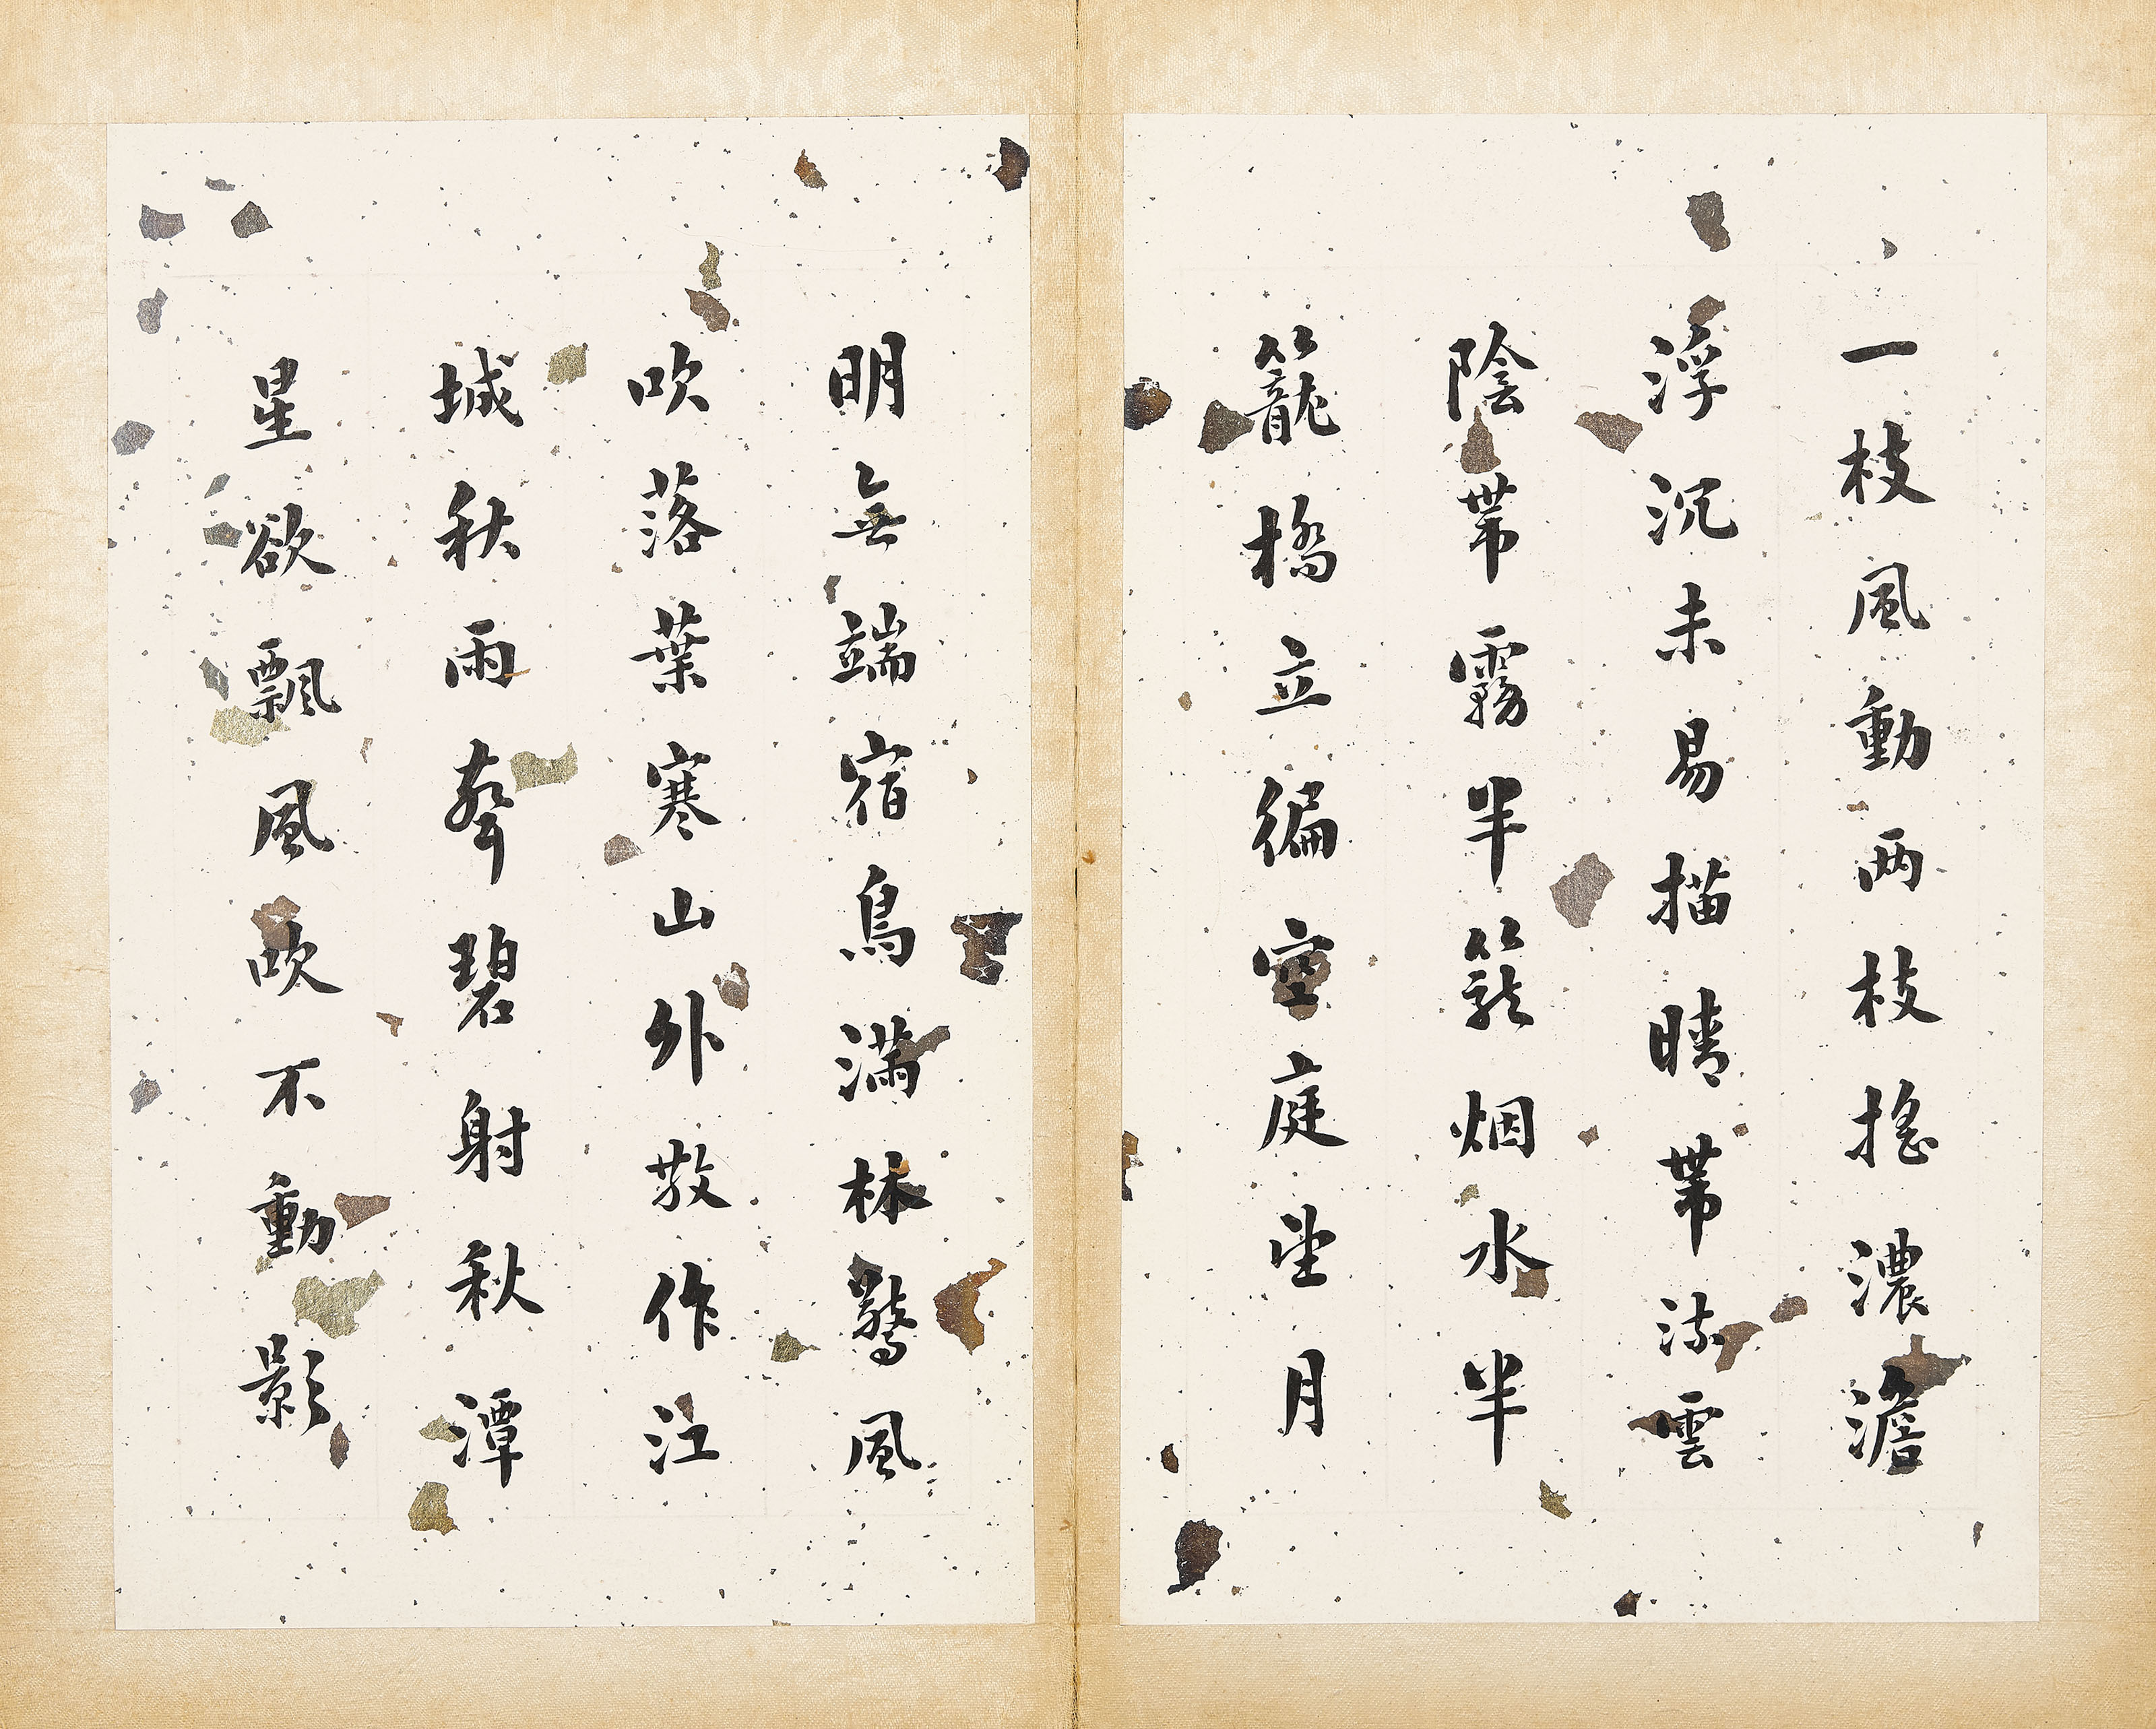 一枝風動两枝搖濃澹
浮沉未易描晴帶流雲
陰帶霧半籠烟水半
籠橋立徧空庭坐月
明無端宿鳥滿林驚風
吹落葉寒山外散作江
城秋雨聲碧射秋潭
星欲飄風吹不動影